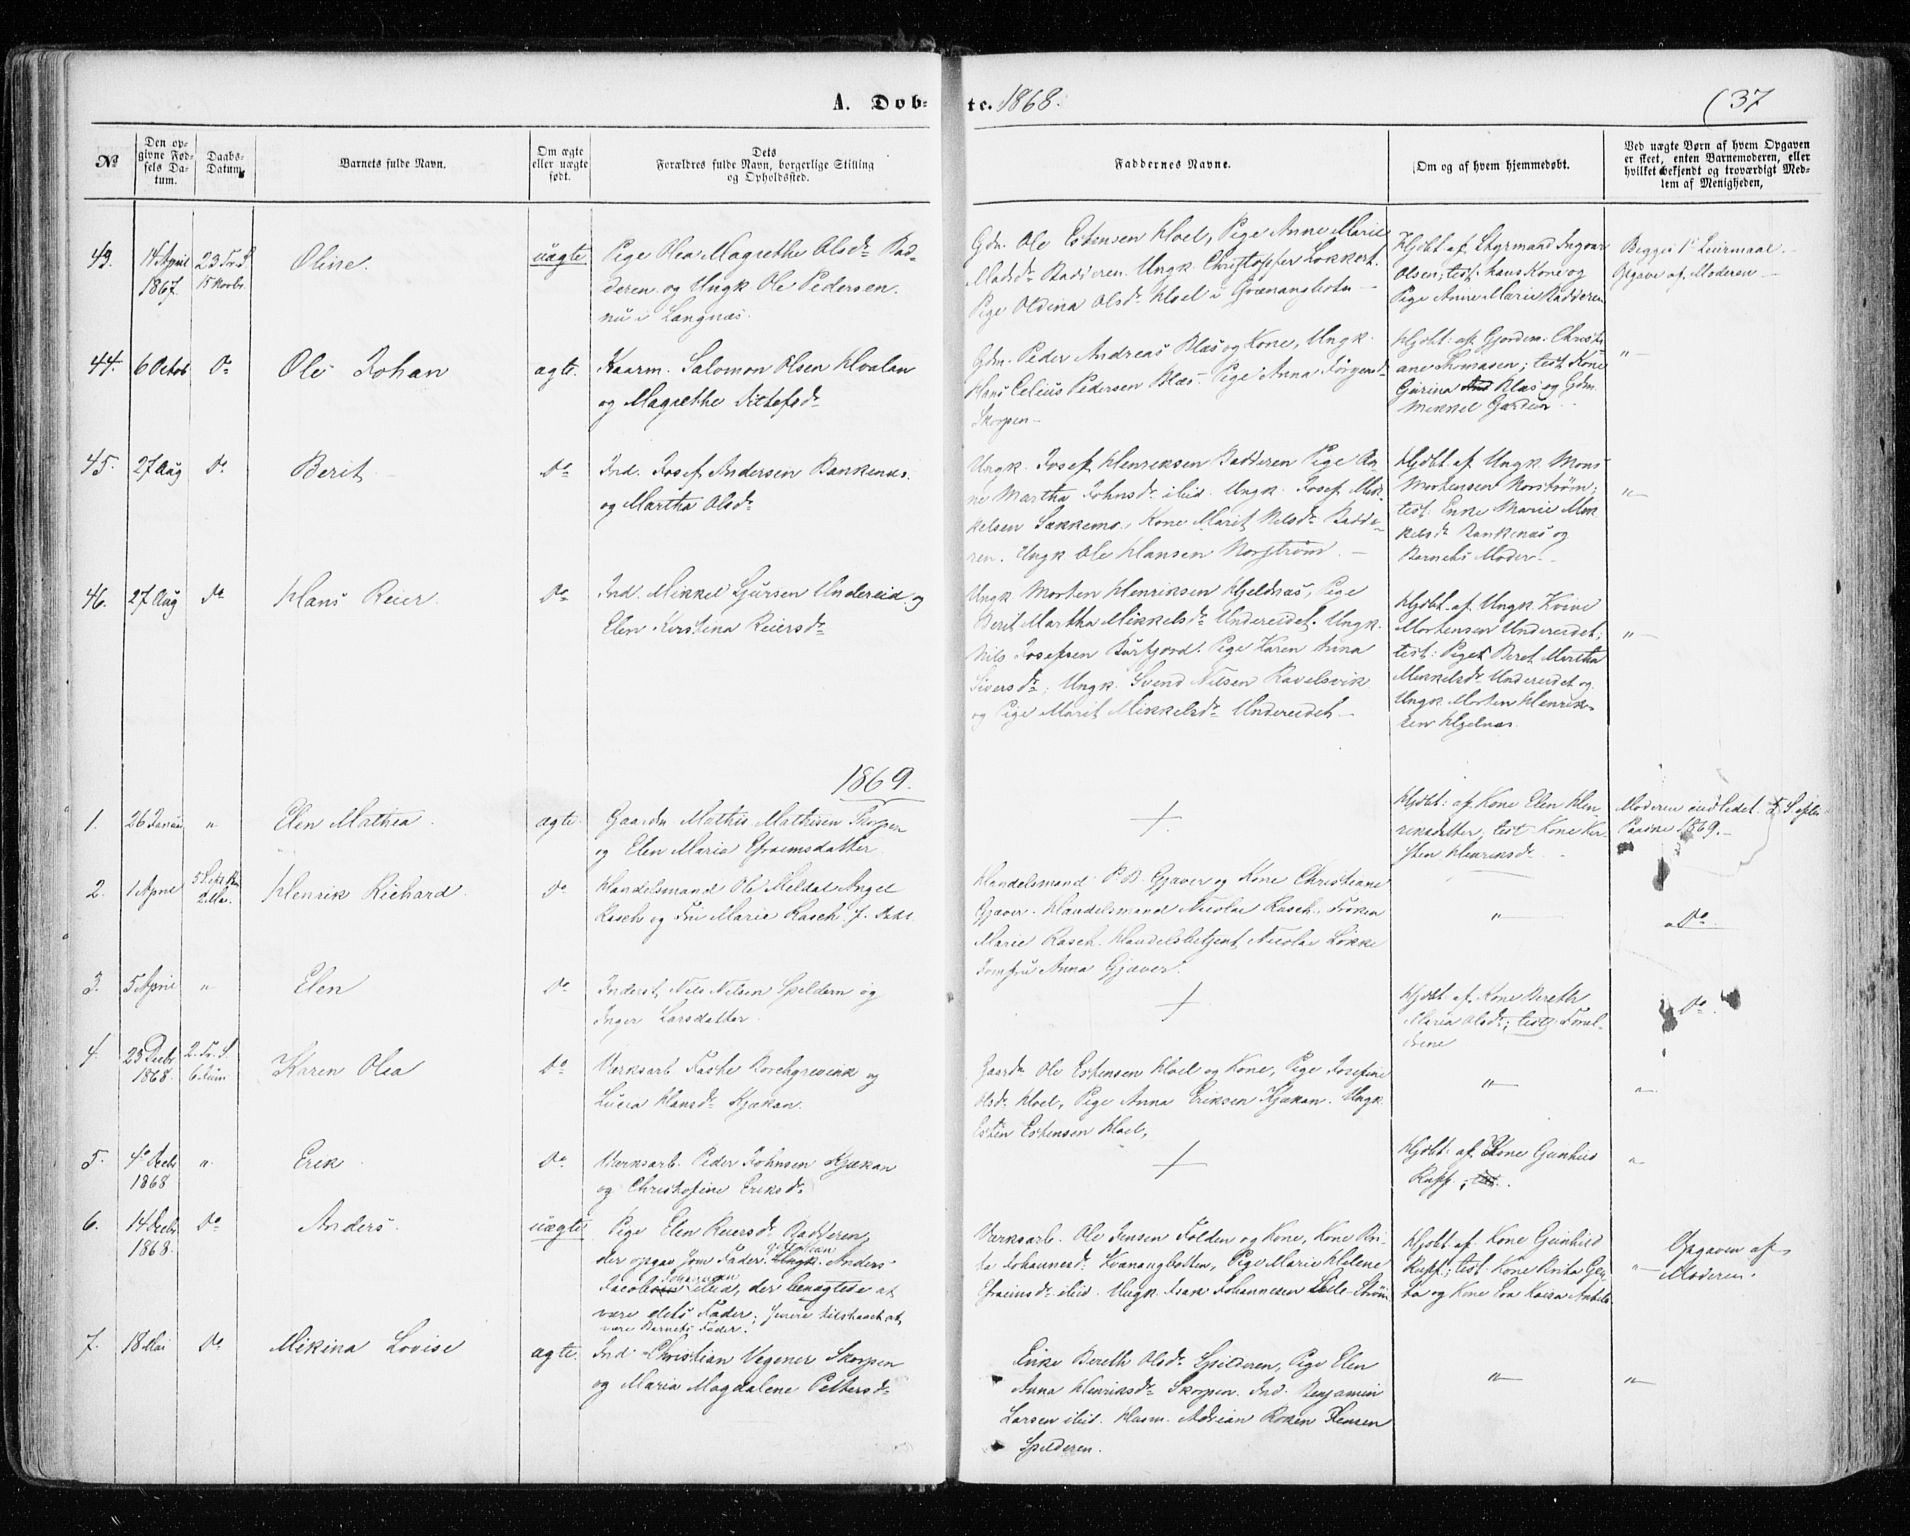 A. Dob-
te. 1868.
(37
No
Den op-
givne Fød-
sels Da-
tum.
Daabs-
Datum.
Barnets fulde Navn.
Om ægte
eller uægte
født.
Dets
Forældres fulde Navn, borgerlige Stilling
og Opholdssted.
Faddernes Navne.
Om og af hvem hjemmedøbt.
Ved uægte Børn af hvem Opgaven
er skeet, enten Barnemoderen, eller
hvilket bekjendt og troværdigt Med-
lem af Menigheden,
43.
14 April
1867.
23 Tr. S.
15 Novbr
Oline.
uægte
Pige Olea Magrethe Olsdr Bad-
deren og Ungk Ole Pedersen
nu i Langnæs.
Gdm. Ole Estensen Hoel, Pige Anne Marie
Madsdr Badderen. Ungk. Christopher Lokkert.
Pige Oldina Olsdr Hoel i Qvænangbotn
Hjdbt af Styrmand Ingvar
Olsen; test. hans Kone og
Pige Anne Marie Badderen
Begges 1ste Leiermaal.
Opgave af Moderen.
44.
6 Octob
Do
Ole Johan
ægte.
Kaarm. Salomon Olsen Hvalan
og Magrethe
Gdm. Peder Andreas Alæs og Kone, Ungk.
Hans Celius Pedersen Alæs. Pige Anna
Skorpen
Hjdbt: af Gjordem. Christi-
ane Thomasen; test. Kone
Gurina Alæs og Gdm.
Mikkel
"
45.
27 Aug
Do
Berit
Do
Ind. Josef Andersen Bankenæs
og Martha Olsdr
Ungk. Josef Henriksen Badderen Pige An-
ne Martha Johnsdr ibid. Ungk. Josef Mik-
kelsen Sakkemo, Kone Marit Nilsdr Badde-
ren. Ungk Ole Hansen Norstrøm.
Hjdbt af Ungk Mons
Mortensen Norstrøm;
test: Enke Marie Mik
kelsdr Bankenæs og
Barnets Moder.
"
46.
27 Aug
Do
Hans Reier
Do
Ind. Mikkel Sjursen Undereid og
Elen Kirstina Reiersdr
Ungk Morten Henriksen Hjelnæs, Pige
Berit Martha Mikkelsdr Undereidet. Ungk.
Nils Josefsen Burfjord. Pige Karen Anna
Siversdr; Ungk. Svend Nilsen Ravelsvik
og Pige Marit Mikkelsdr Undereidet
Hjdbt. af Ungk
Mortensen Undereidet;
test: Pige Beret Martha
Mikkelsdr Undereidet og
Ungk Morten Henrik-
sen Hjelnæs.
"
1869.
1.
26 Januar
"
Elen Mathea
ægte.
Gaardm. Mathis Mathisen Skorpen
og Elen Maria Efraimsdatter
+
Hjdbt: af Kone Elen Hen-
riksdatter, test Kone Kir-
sten Henriksdr
Moderen indledet
Paaske 1869.
2.
1 April
2 Mai.
Henrik Richard
Do
Handelsmand Ole Meldal Angel
Rasch og Fru Marie Rasch f.
Handelsmand P.D. Gjæver og Kone Christiane
Gjæver. Handelsmand Nicolai Rasch. Frøken
Marie Rasch. Handelsbetjent Nicolai Løkke
Jomfru Anna Gjæver.
"
Do
3.
5 April
"
Elen
Do
Inderst Nils Nilsen Spildern og
Inger Larsdatter.
+
Hjdbt: af Kone Bereth
Maria Olsdr; test: Foræl-
drene
Do.
4.
23 Decbr
1868.
2. Tr. S.
6 Juni
Karen Olea
Do
Værksarb. Faste Borchgrevink og
Lucia Hansdr Kjækan.
Gaardm Ole Estensen Hoel og Kone, Pige Josefine
Olsdr Hoel, Pige Anna Eriksen Kjækan. Ungk.
Esten Estensen Hoel,
"
"
5.
4de Decbr
1868
"
Erik
Do
Værksarb. Peder Johnsen Kjækan
og Christofine Eriksdr
+
Hjdbt: af Kone Gunhild
Rapp;
"
6.
14 Decbr
1868.
Do
Anders.
uægte
Pige Elen Reiersdr Badderen,
der opgav som Fader Anders
Jacob Johannsen ibid, der benægtede at
være dets Fader; senere tilstaaet at
være Barnets Fader.
Værksarb. Ole Jensen Folden og Kone, Kone Bri-
ta Johannesdr. Kvænangbotten, Pige Marie Helene
Efraimsdr ibid. Ungk. Isak Johannesen Lille Strøm
Hjdbt. af Kone Gunhild
Rapp; test: Kone Brita Gre-
ta og Kone Eva Kaisa
"
Opgaven af
Moderen.
7.
18 Mai
Do
Mikina Lovise
ægte.
Ind Christian Vegener Skorpen
og Maria Magdalene Pettersdr
Enke Bereth Olsdr Spilderen, Pige Elen
Anna Henriksdr Skorpen. Ind. Benjamin
Larsen ibid. Husm. Adrian Jensen
Spilderen.
"
"